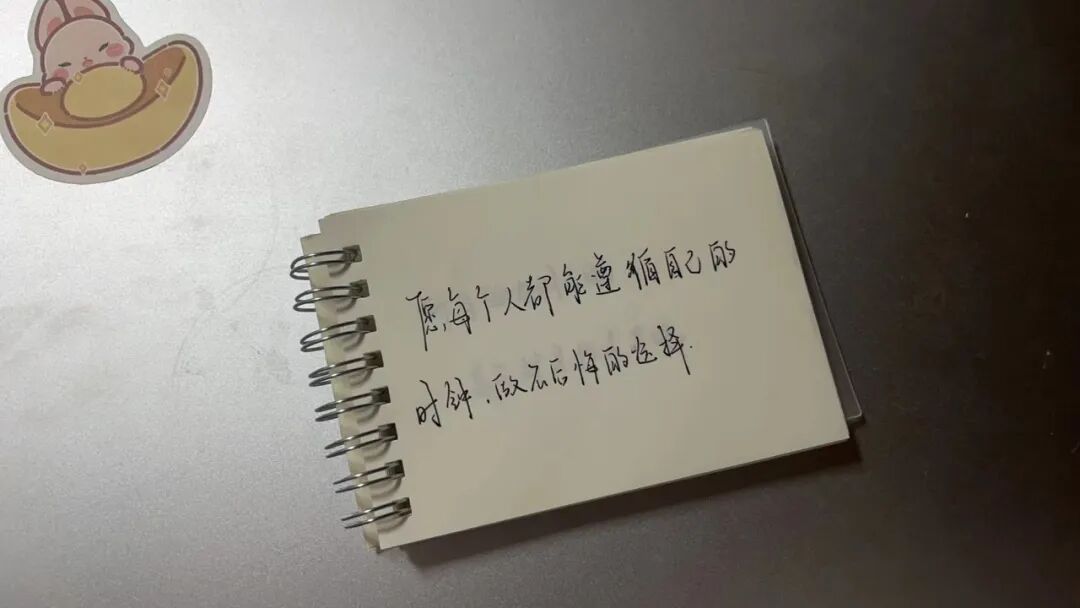 愿每个人都能遵循自己的
时钟,做不后悔的选择.